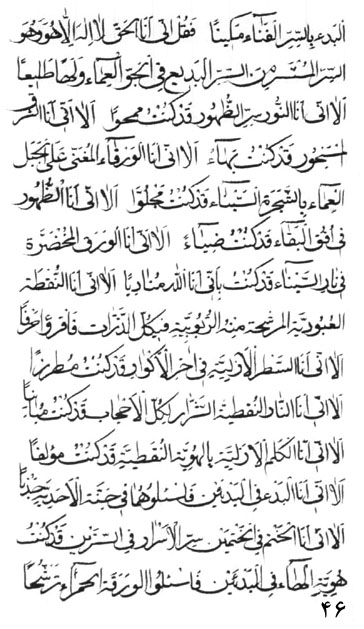 البدء بالسر الفناء مکینا فقل انی انا الحق لا اله الا هو وهو
السر المستسر من السر البدیع فی الجو العماء ولها طایعا
الا انی انا النور من الظهور قد کنت ممحوا الا انی انا
قد کنت بهاء الا انی انا الورقاء المغنی علی الجبل
العماء بالشجرة السیناء قد کنت مخلوا الا انی انا الظهور
فی افق البقاء قد کنت ضیاء الا انی انا الورق المخضرة
فی نار السیناء قد کنت بانی انا الله منادیا الا انی انا النقطة
العبودیة المرشحة منه الربوبیة فی کل الذرات فاقرؤا حرفا
الا انی انا السطر الازلیة فی اخر الاکوار قد کنت مطرزا
الا انی انا النار النقطیة لکل الاحجاب قد کنت
الا انی انا الکلم الازلیة بالهویة النقطیة قد کنت مؤلفا
الا انی انا البدء فی البدئین فاسئلوها فی جنة الاحدیة
الا انی انا الختم فی الختمین سر الاسرار فی السرین قد کنت
هویة الهاء فی البدئین فاسئلوا الورقة الحمراء رشحا
۴۶